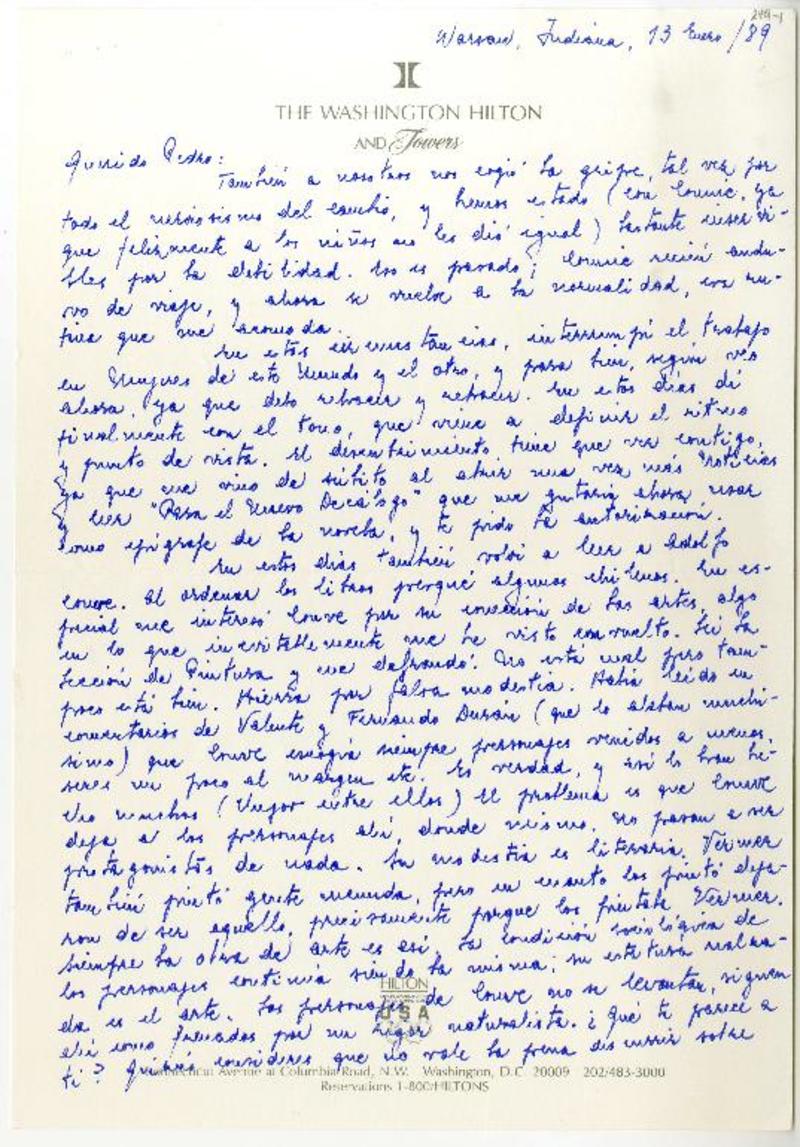 249-1
Warsaw, Indiana, 13 Enero/89
THE WASHINGTON HILTON
AND Towers
Querido Pedro:
También a nosotros nos cogió la gripe, tal vez por
todo el nerviosismo del cambio, y hemos estado (con Connie, ya
que felizmente a los niños no les dió igual) bastante inservi-
bles por la debilidad. Eso es pasado; Connie recién anduvo
vo de viaje, y ahora se vuelve a la normalidad, era ru-
tina que me acomoda.
En estas circunstancias, interrumpí el trabajo
en Mujeres de este Mundo y el otro, y para bien, según veo
ahora, ya que debo rehacer y rehacer. En estos días dí
finalmente con el tono, que viene a definir el ritmo
y punto de vista. El descubrimiento tiene que ver contigo,
ya que me vino de súbito al abrir una vez más Noticias
y leer "Para el Nuevo Decálogo" que me gustaría ahora usar
como epígrafe de la novela, y te pido la autorización.
En estos días también volví a leer a Adolfo
Couve. Al ordenar los libros pesqué algunos chilenos. En es-
pecial me interesó Couve por su conexión de las artes, algo
en lo que inevitablemente me he visto envuelto. Leí la
Lección de Pintura y me defraudó. No está mal pero tam-
poco está bien. Hierra por falsa modestia. Había leído en
comentarios de Valente y Fernando Durán (que lo alaban muchí-
simo) que Couve escogía siempre personajes venidos a menos,
seres un poco al margen etc. Es verdad, y así lo han he-
cho muchos (Vugor entre ellos) El problema es que Couve
deja a los personajes ahí, donde mismo. No pasan a ser
protagonistas de nada. Su modestia es literaria. Vermer
también pintó gente menuda, pero en cuanto los pintó deja-
ron de ser aquello, precisamente porque los pintaba Vermer.
Siempre la obra de arte es así. La condición sociológica de
los personajes continúa siendo la misma; su estatura
da es el arte. Los personajes de Couve no se levantan, siguen
ahí como frenados por un rigor naturalista. ¿Que te parece a
ti? Quizás consideres que no vale la pena discurrir sobre
HILTON
USA
Connecticut Avenue at Columbia Road, N.W. Washington, D.C. 20009 202/483-3000
Reservations 1-800/HILTONS